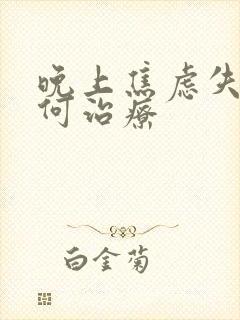 晚上焦虑失
何治疗
白金菊